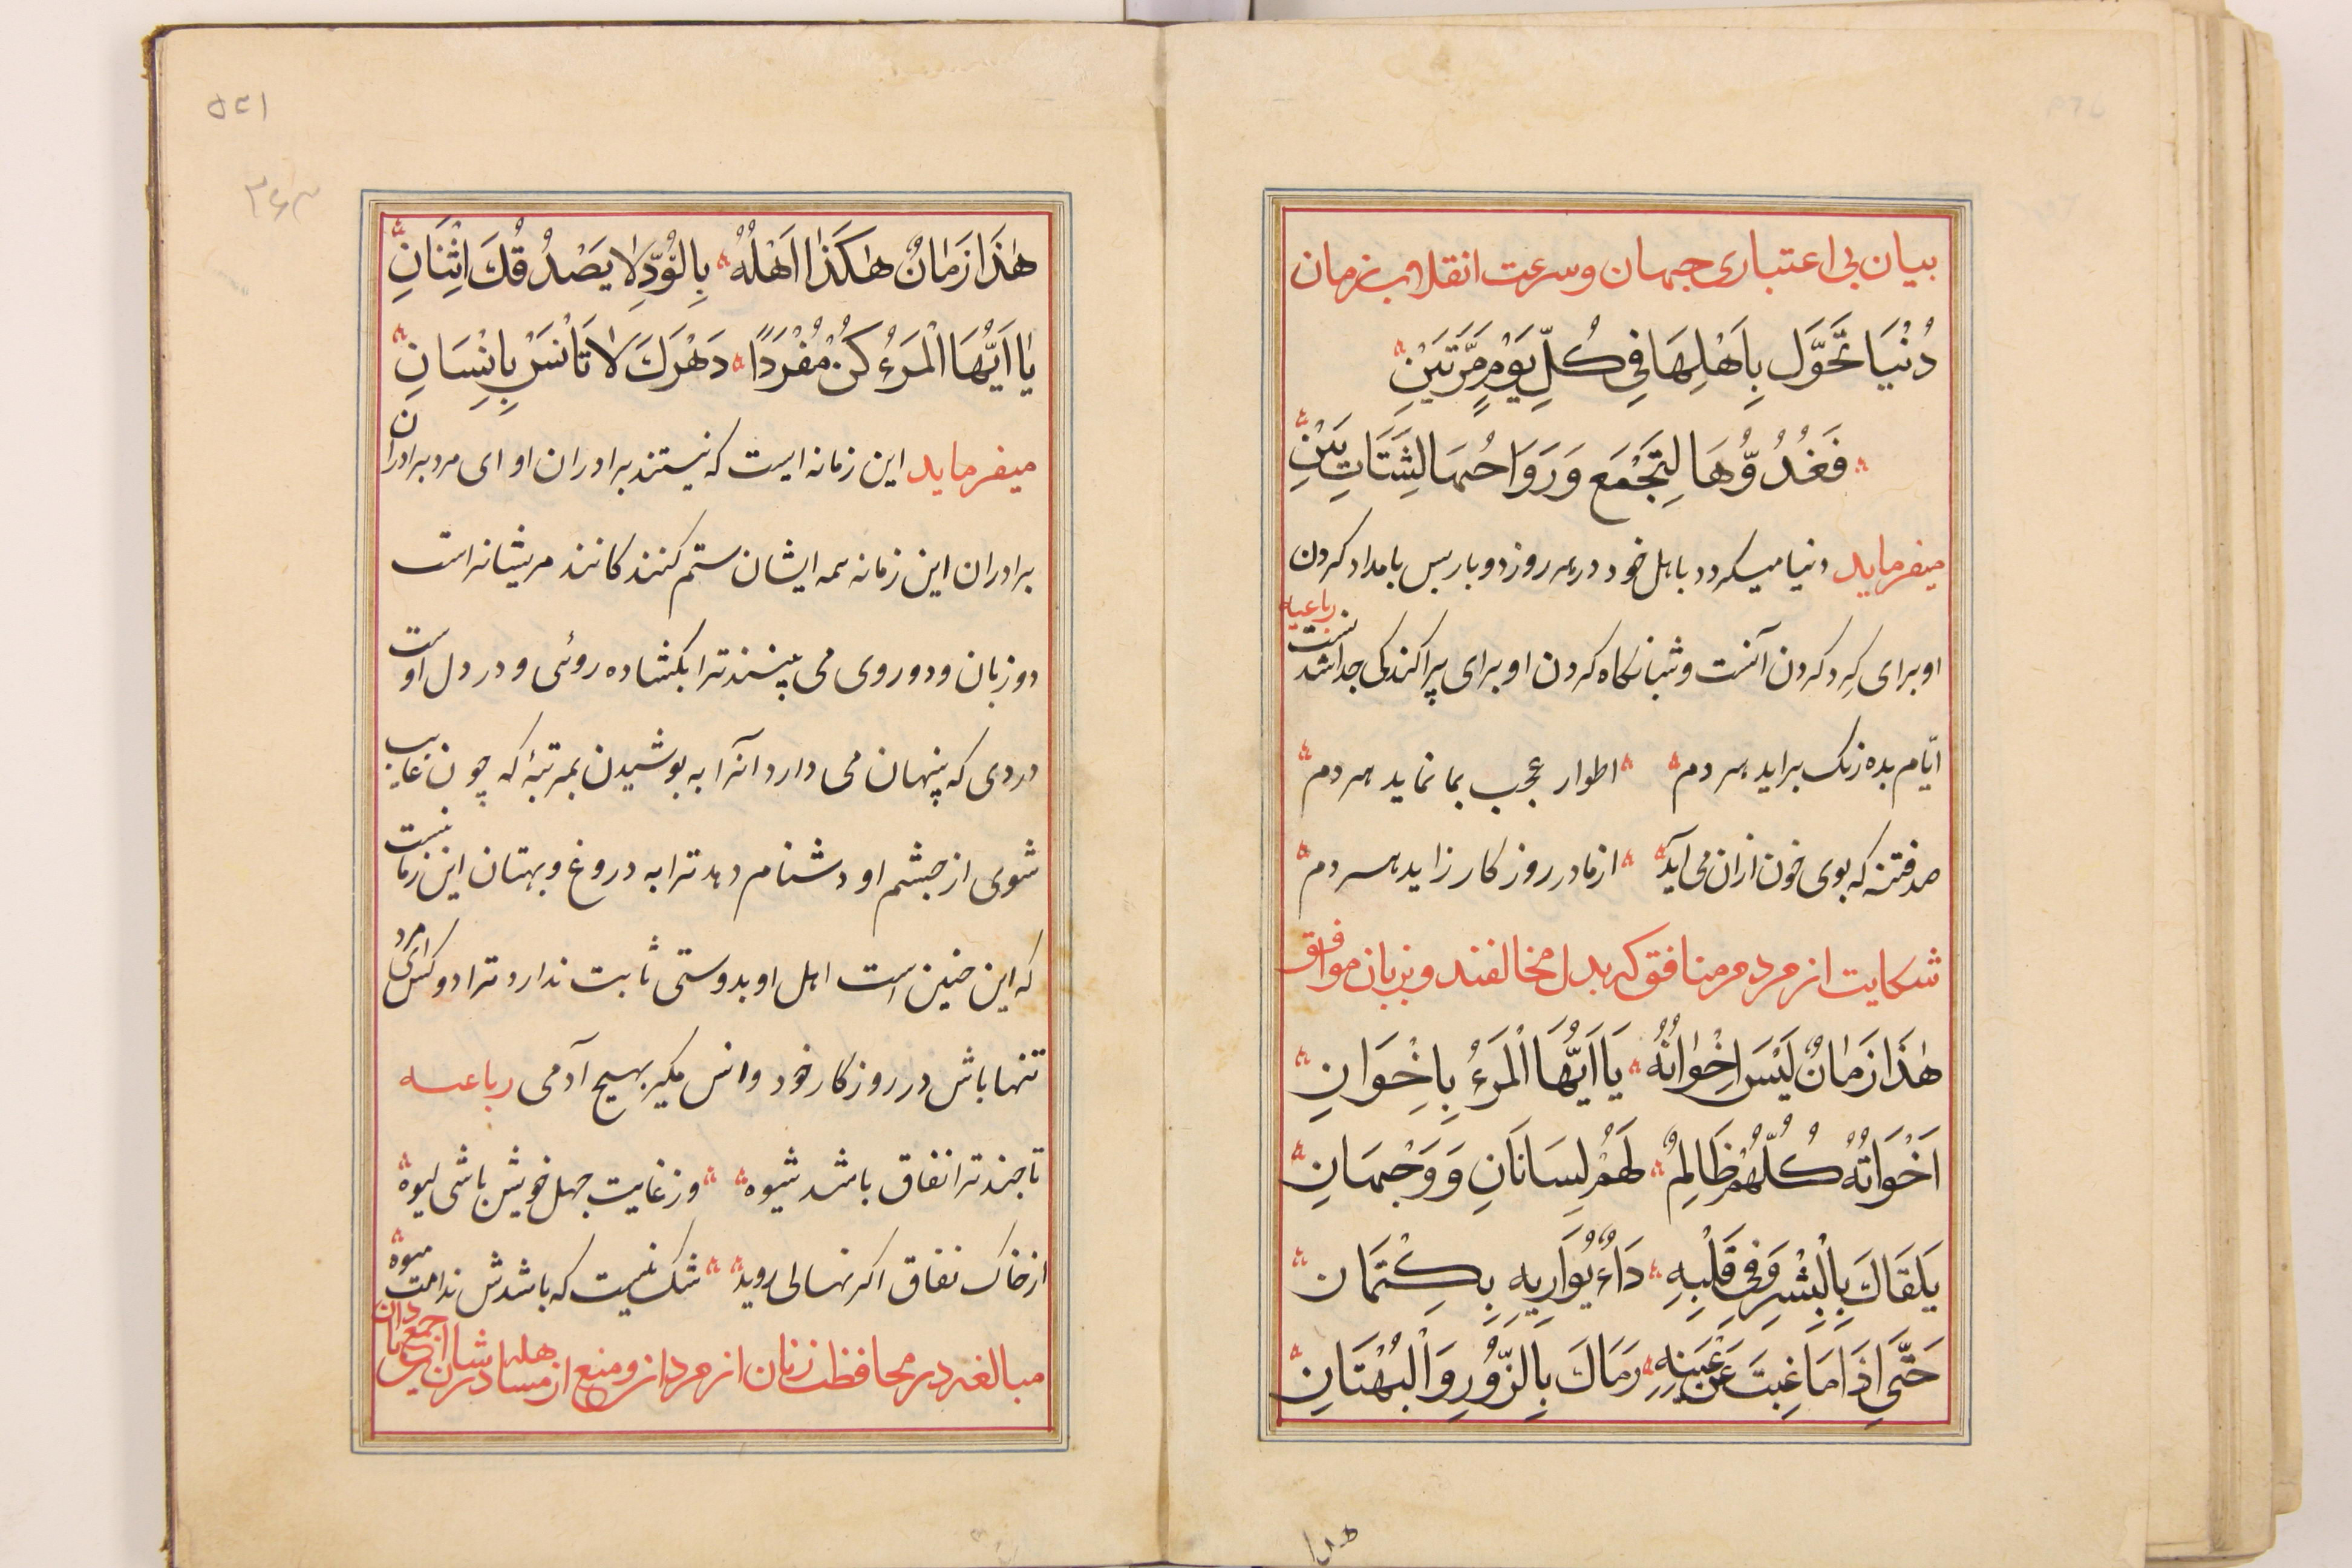 بیان بی اعتباری جهان و سرعت انقلاب زمان
دُنْیَا تَحَوَّل بِاَهْلِهَا فِی کُلِّ یَوْمٍ مَرَّتَیْنِ
فَغُدُوُّهَا لِتَجَمُّعٍ وَرَوَاحُهَا لِشَتَاتِ بَیْنِ
میفرماید دنیا میکردد باهل خود در هر روز دو بار پس بامداد کردن
او برای کِرد کردن آنست و شبانکاه کردن او برای پراکندکی جداشدنست رباعیه
ایّام بده رنک براید هر دم اطوار عجب بما نماید هر دم
صد فتنه که بوی خون ازان می آید از مادر روزکار زاید هر دم
شکایت از مردم منافق که بدل مخالفند و بزبان موافق
هٰذَا زَمَانٌ لَیْسَ اِخْوَانُهُ یَا اَیُّهَا الْمَرْءُ بِاِخْوَانِ
اَخْوَاتُهُ کُلُّهُمْ ظَالِمٌ لَهُمْ لِسَانَانِ وَ وَجْهَانِ
یَلقَاكَ بِالْبِشْرِ وَفِی قَلْبِهِ دَاءٌ یُوَارِیهِ بِکِتْمَان
حَتَّی اِذَا مَا غِبتَ عَنْ عَیْنِهِ رَمَاكَ بِالزُّورِ وَالْبُهْتَانِ
۵۲۱
۳۶۳
هٰذَا زَمَانٌ هٰکَذَا اَهْلُهُ بِالْوُدِّ لَا یَصْدُقُكَ اثْنَانِ
یٰا اَیُّهَا الْمَرْءُ کُنْ مُفْرَدًا دَهْرَكَ لَا تَأْنَسْ بِاِنْسَانِ
میفرماید این زمانه ایست که نیستند برادران او ای مرد برادران
برادران این زمانه همه ایشان ستم کنندکانند مریشانراست
دو زبان و دو روی می بینند ترا بکشاده روئی و در دل اوست
دردی که پنهان می دارد آنرا به پوشیدن بمرتبهٔ که چون غایب
شوی از چشم او دشنام دهد ترا به دروغ و بهتان این زمانیست
که این چنین است اهل او بدوستی ثابت ندارد ترا دو کس ای مرد
تنها باش در روزکار خود و انس مکیر بهیچ آدمی رباعیه
تا چند ترا نفاق باشد شیوه وز غایت جهل خویش باشی لیوه
از خاك نفاق اکر نهالی روید شك نیست که باشدش ندامت میوه
مبالغه در محافظت زنان از مردان و منع از